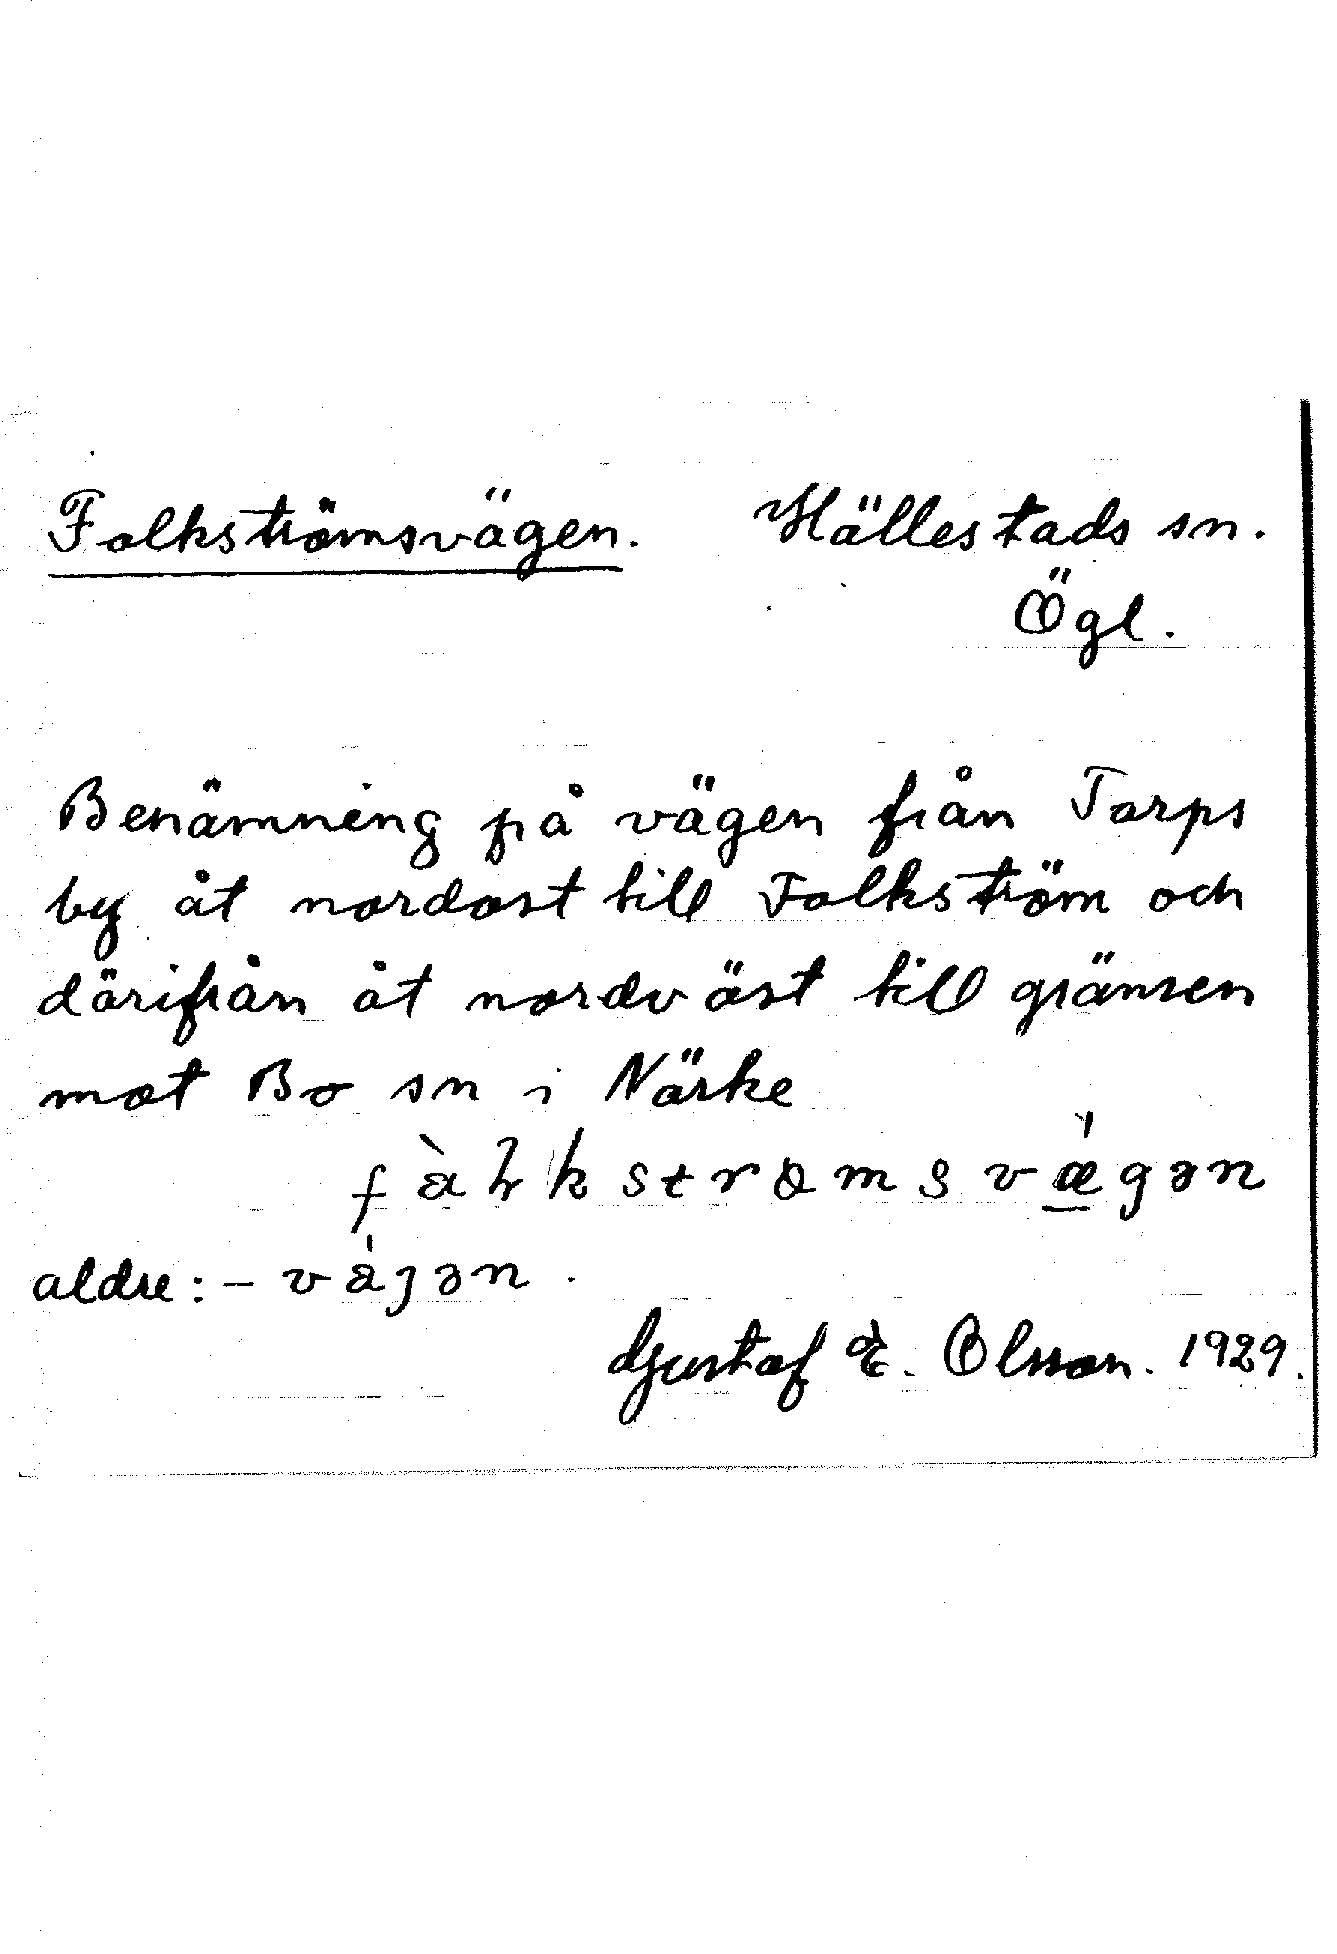 Folkströmsvägen. Hällestads sn.
Ögl.
Benämning på vägen från Torps
by åt nordost till Folkström och
därifrån åt nordväst till gränsen
mot Bo sn i Närke
aldre: –
Gustaf E. Olsson. 1929.